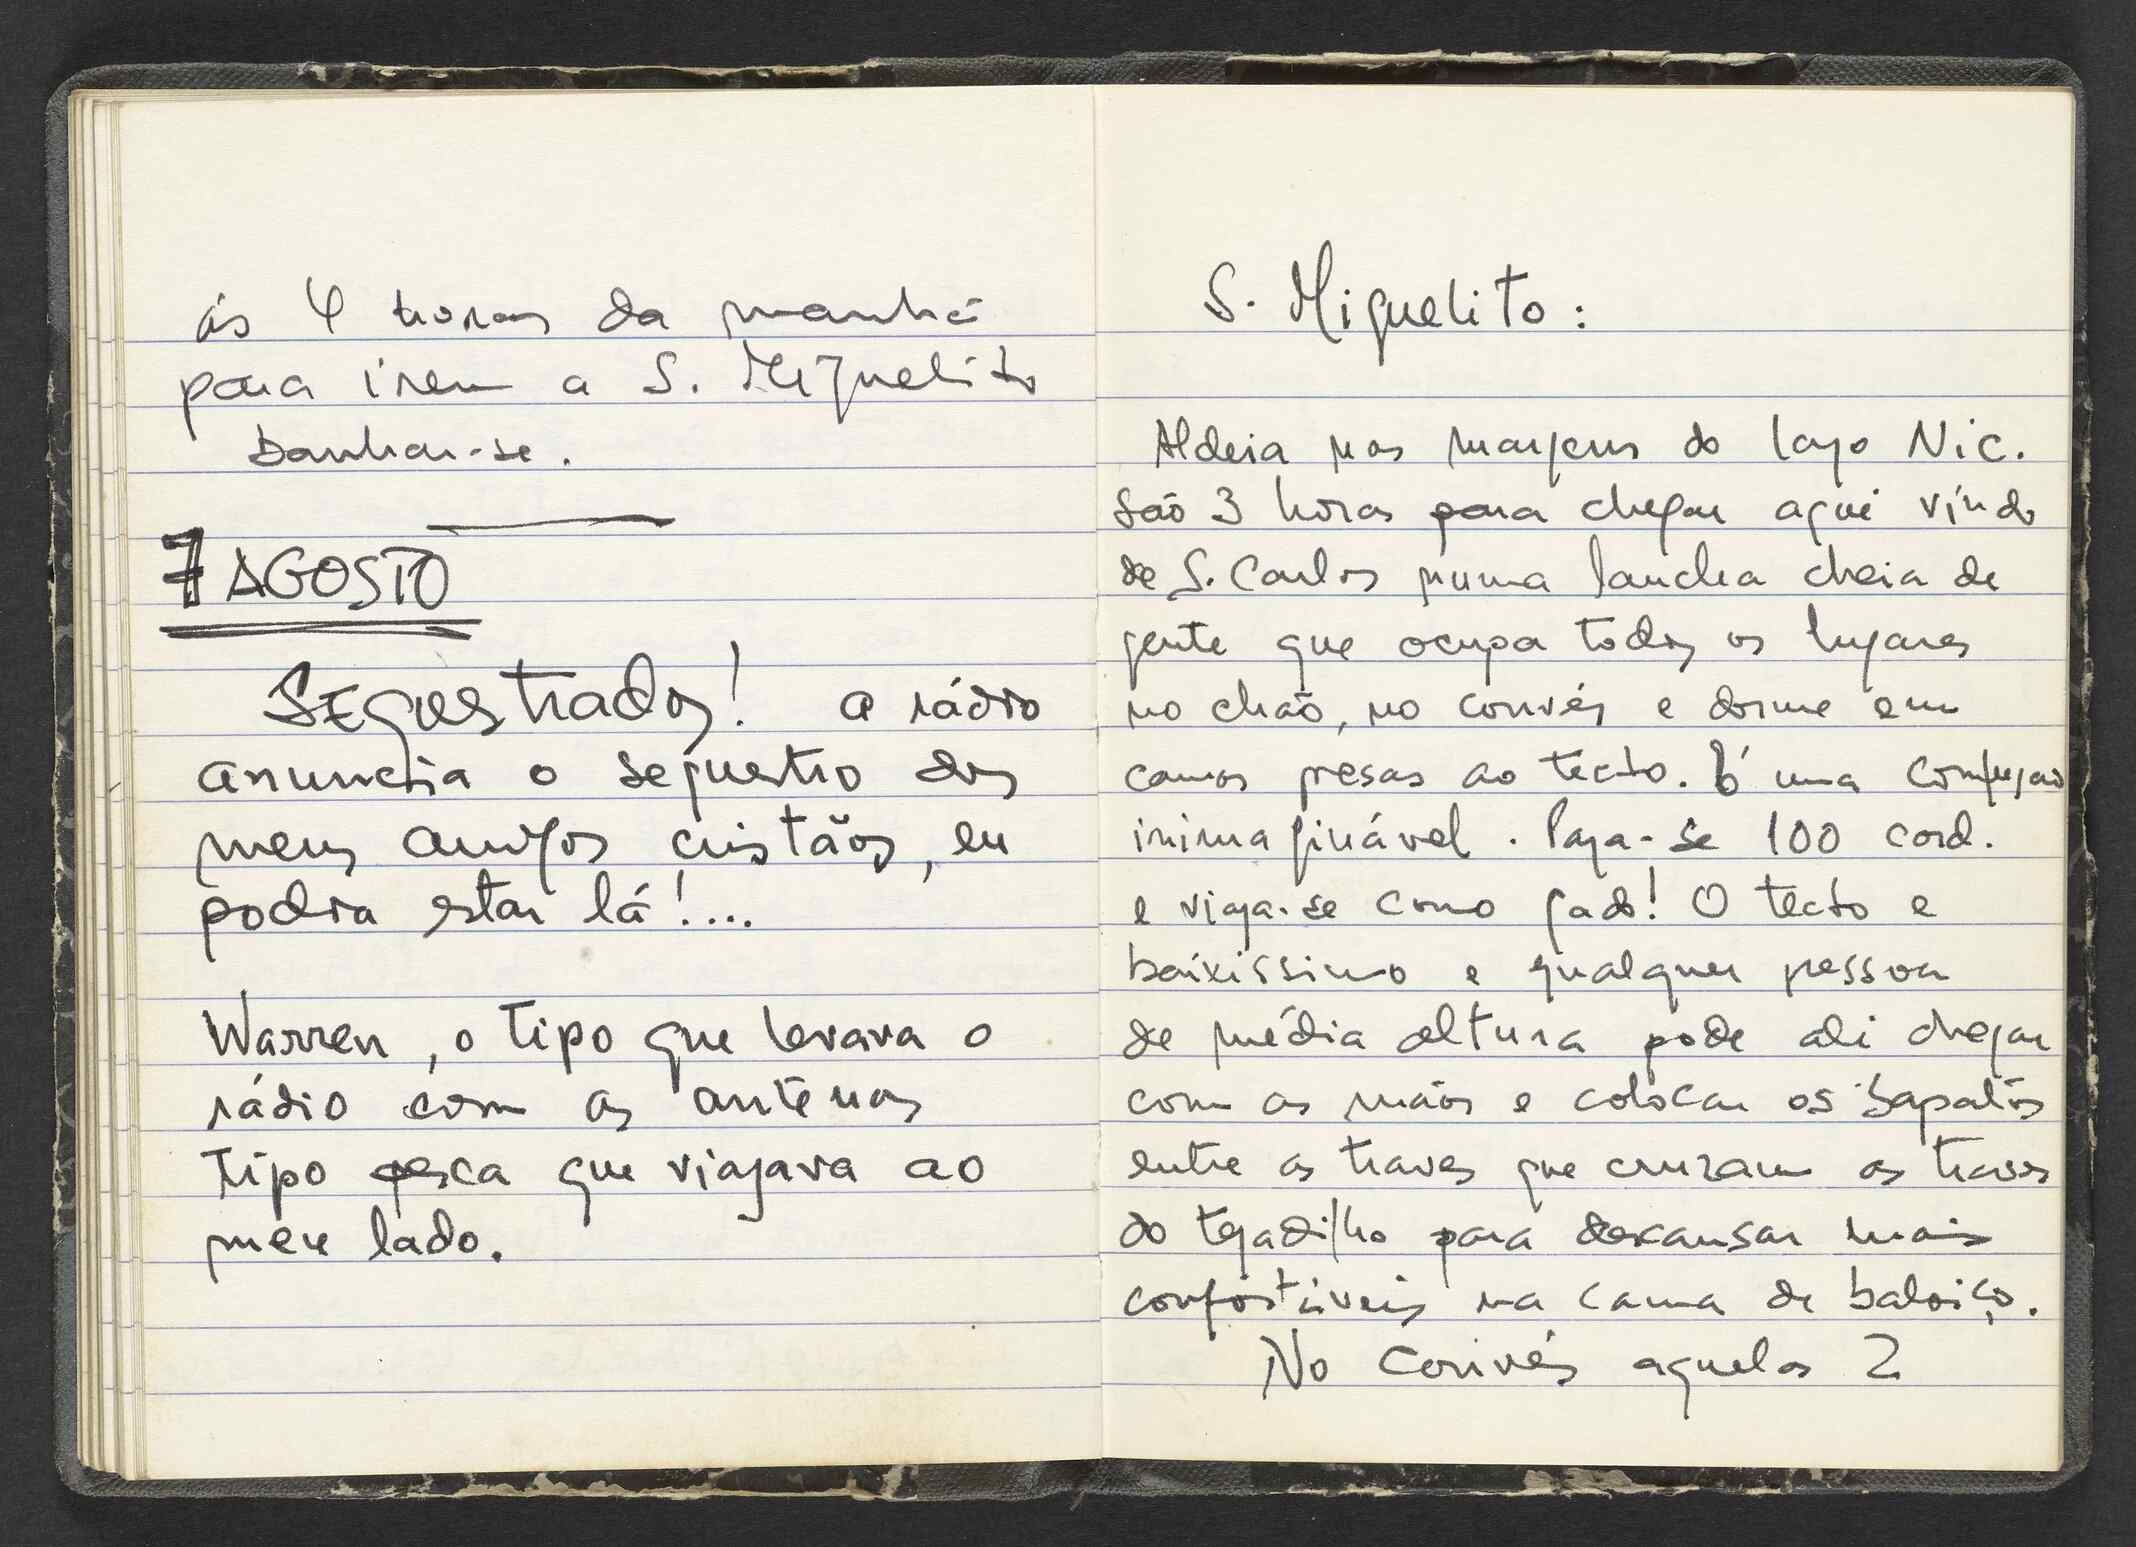 ás 4 horas da manhã
para irem a S. Miguelito
banhar-se.
7 AGOSTO
SEquestrados! a rádio
anuncia o sequestro dos
meus amigos cristãos, eu
podia estar lá!....
Warren, o tipo que levava o
rádio com as antenas
tipo pesca que viajava ao
meu lado.
S. Miguelito:
Aldeia nas margens do lago Nic.
São 3 horas para chegar aqui vindo
de S. Carlos numa lancha cheia de
gente que ocupa todos os lugares
no chão, no convés e dorme em
camas presas ao tecto. É uma confusão
inimaginável. Paga-se 100 cord.
e viaja-se como gado! O tecto e
baixissimo e qualquer pessoa
de média altura pode ali chegar
com as mãos e colocar os sapatos
entre as traves que cruzam as traves
do tejadilho para descansar mais
confortáveis na cama de baloiço.
No convés aquelas 2